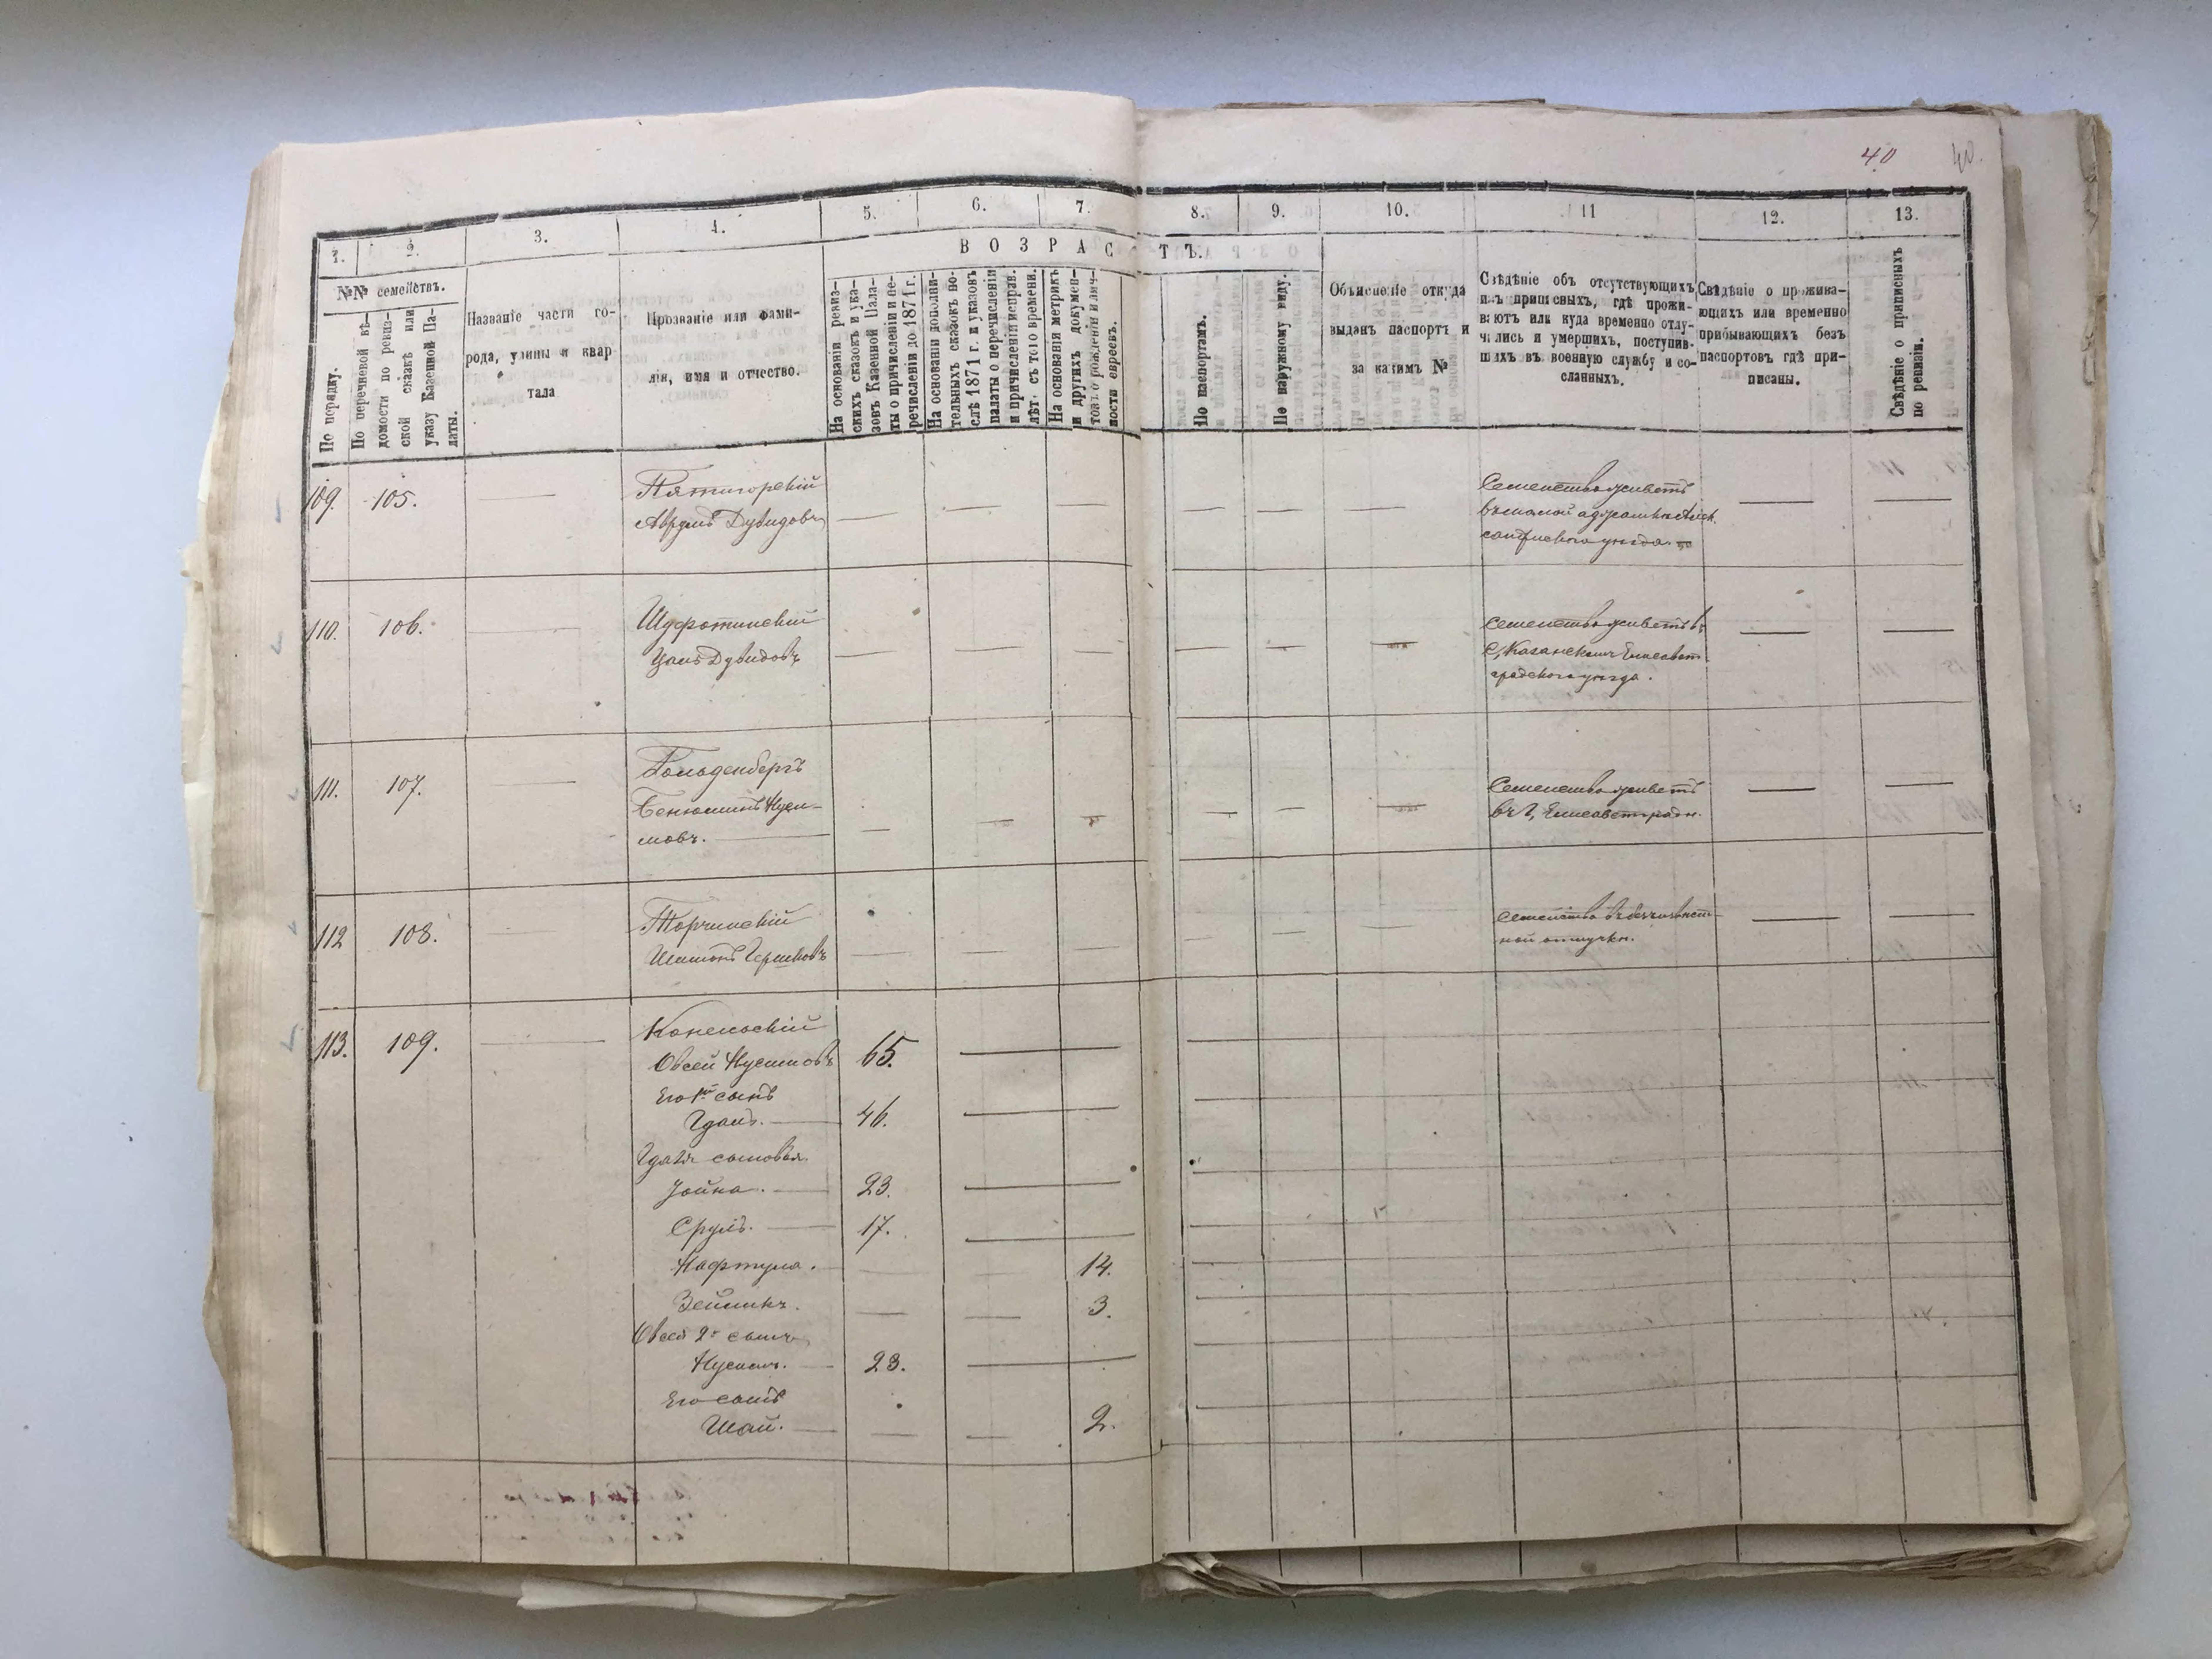 40
40.
1.
2.
3.
4.
5.
6.
7.
8.
9.
10.
11
12.
13.
№№ семействъ.
ВОЗРАСТЪ.
По порядку.
По перечневой вѣ-
домости по ревиз-
ской сказкѣ или
указу Казенной Па-
латы.
Названіе части го-
рода, улицы и квар
тала
Прозваніе или фами-
лія, имя и отчество.
На основаніи ревиз-
скихъ сказокъ и ука-
зовъ Казенной Пала-
ты о причисленіи и пе-
речисленіи до 1871 г.
На основаніи дополни-
тельныхъ сказокъ по-
слѣ 1871 г. и указовъ
палаты о перечисленіи
и причисленіи исправ.
лѣт. съ того времени.
На основаніи метрикъ
и другихъ докумен-
товъ о рожденіи и лич-
ности евреевъ.
По паспортамъ.
По наружному виду.
Объясненіе откуда
выданъ паспортъ и
за какимъ №
Свѣдѣніе объ отсутствующихъ
изъ приписныхъ, гдѣ прожи-
ваютъ или куда временно отлу-
чились и умершихъ, поступив-
шихъ въ военную службу и со-
сланныхъ.
Свѣдѣніе о прожива-
ющихъ или временно
прибывающихъ безъ
паспортовъ гдѣ при-
писаны.
Свѣдѣніе о приписныхъ
по ревизіи.
109. 105.
Пятигорскій
Аврумъ Дувидовъ
Семейство живетъ
сандрійскаго уѣзда.
110. 106.
Дувидовъ
Семейство живетъ въ
с, Казанскомъ Елисавет-
градскаго уѣзда.
111. 107.
Гольденбергъ
Бенюминъ Нуси-
мовъ.
Семейство живетъ
въ г, Елисаветградѣ.
112 108.
Торчинскій
Шимонъ Гершковъ
Семейство въ безъизвѣст-
ной отлучкѣ.
113. 109.
Конельскій
Овсей Нусимовъ 65.
Его 1й сынъ
Гдаль. 46.
Гдаля сыновья
Іойна. 23.
Сруль. 17.
Нафтула. 14.
Зейликъ. 3.
Овсея 2й сынъ
Нусимъ. 28.
Его сынъ
Шай. 2.